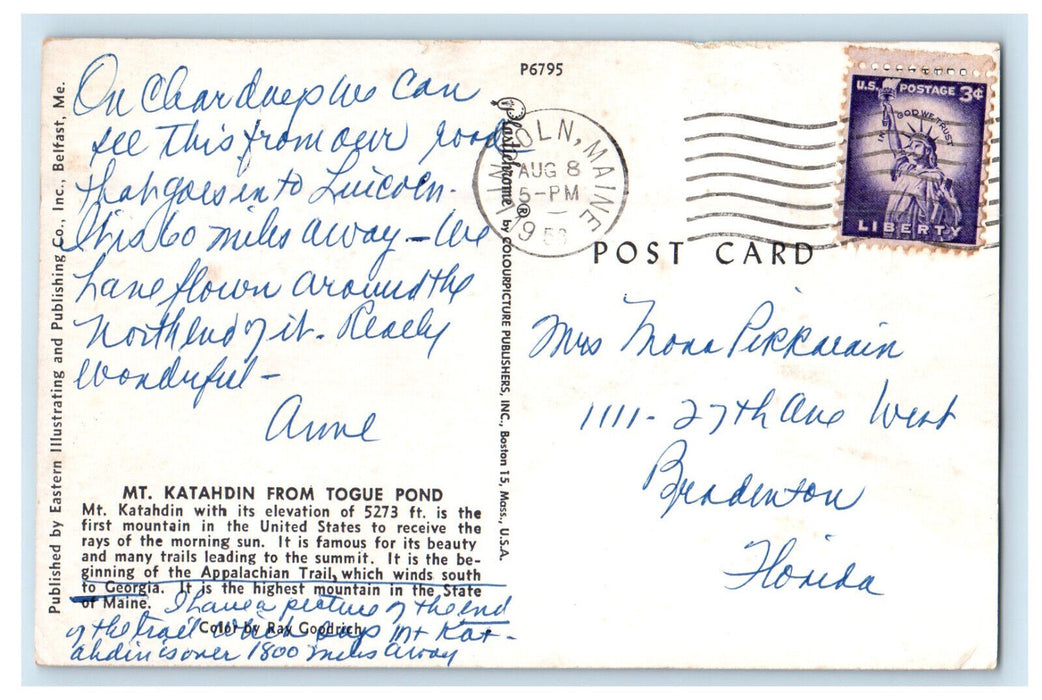 P6795
On Clear days we can
see this from our road
that goes in to Lincoln.
It is 60 miles away - We
have flown around the
North end of it. Really
wonderful -
Anne
MT. KATAHDIN FROM TOGUE POND
Mt. Katahdin with its elevation of 5273 ft. is the
first mountain in the United States to receive the
rays of the morning sun. It is famous for its beauty
and many trails leading to the summit. It is the be-
ginning of the Appalachian Trail, which winds south
to Georgia. It is the highest mountain in the State
of Maine.
I have a picture of the end
of the trail which says Mt Kat-
ahdin is over 1800 miles away
Color by Ray Goodrich
Published by Eastern Illustrating and Publishing Co., Inc., Belfast, Me.
Plastichrome® by COLOURPICTURE PUBLISHERS, INC., Boston 15, Mass., U.S.A.
LINCOLN, MAINE
AUG 8
5-PM
U.S. POSTAGE 3¢
IN GOD WE TRUST
LIBERTY
POST CARD
Mrs Mona Pikkarain
1111 - 27th Ave West
Bradenton
Florida